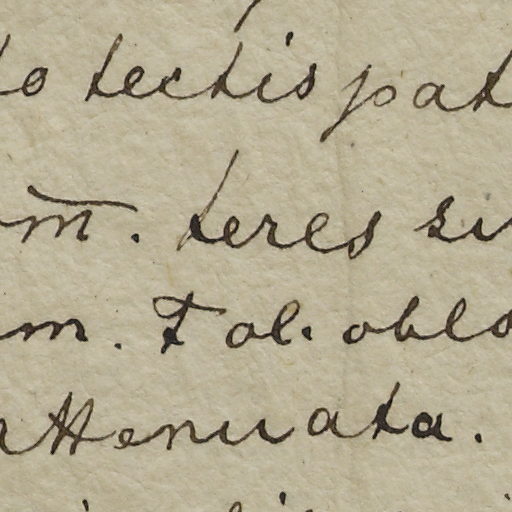 to tectis pat
m̅. teres su
m. Fol. oblo
attenuata.